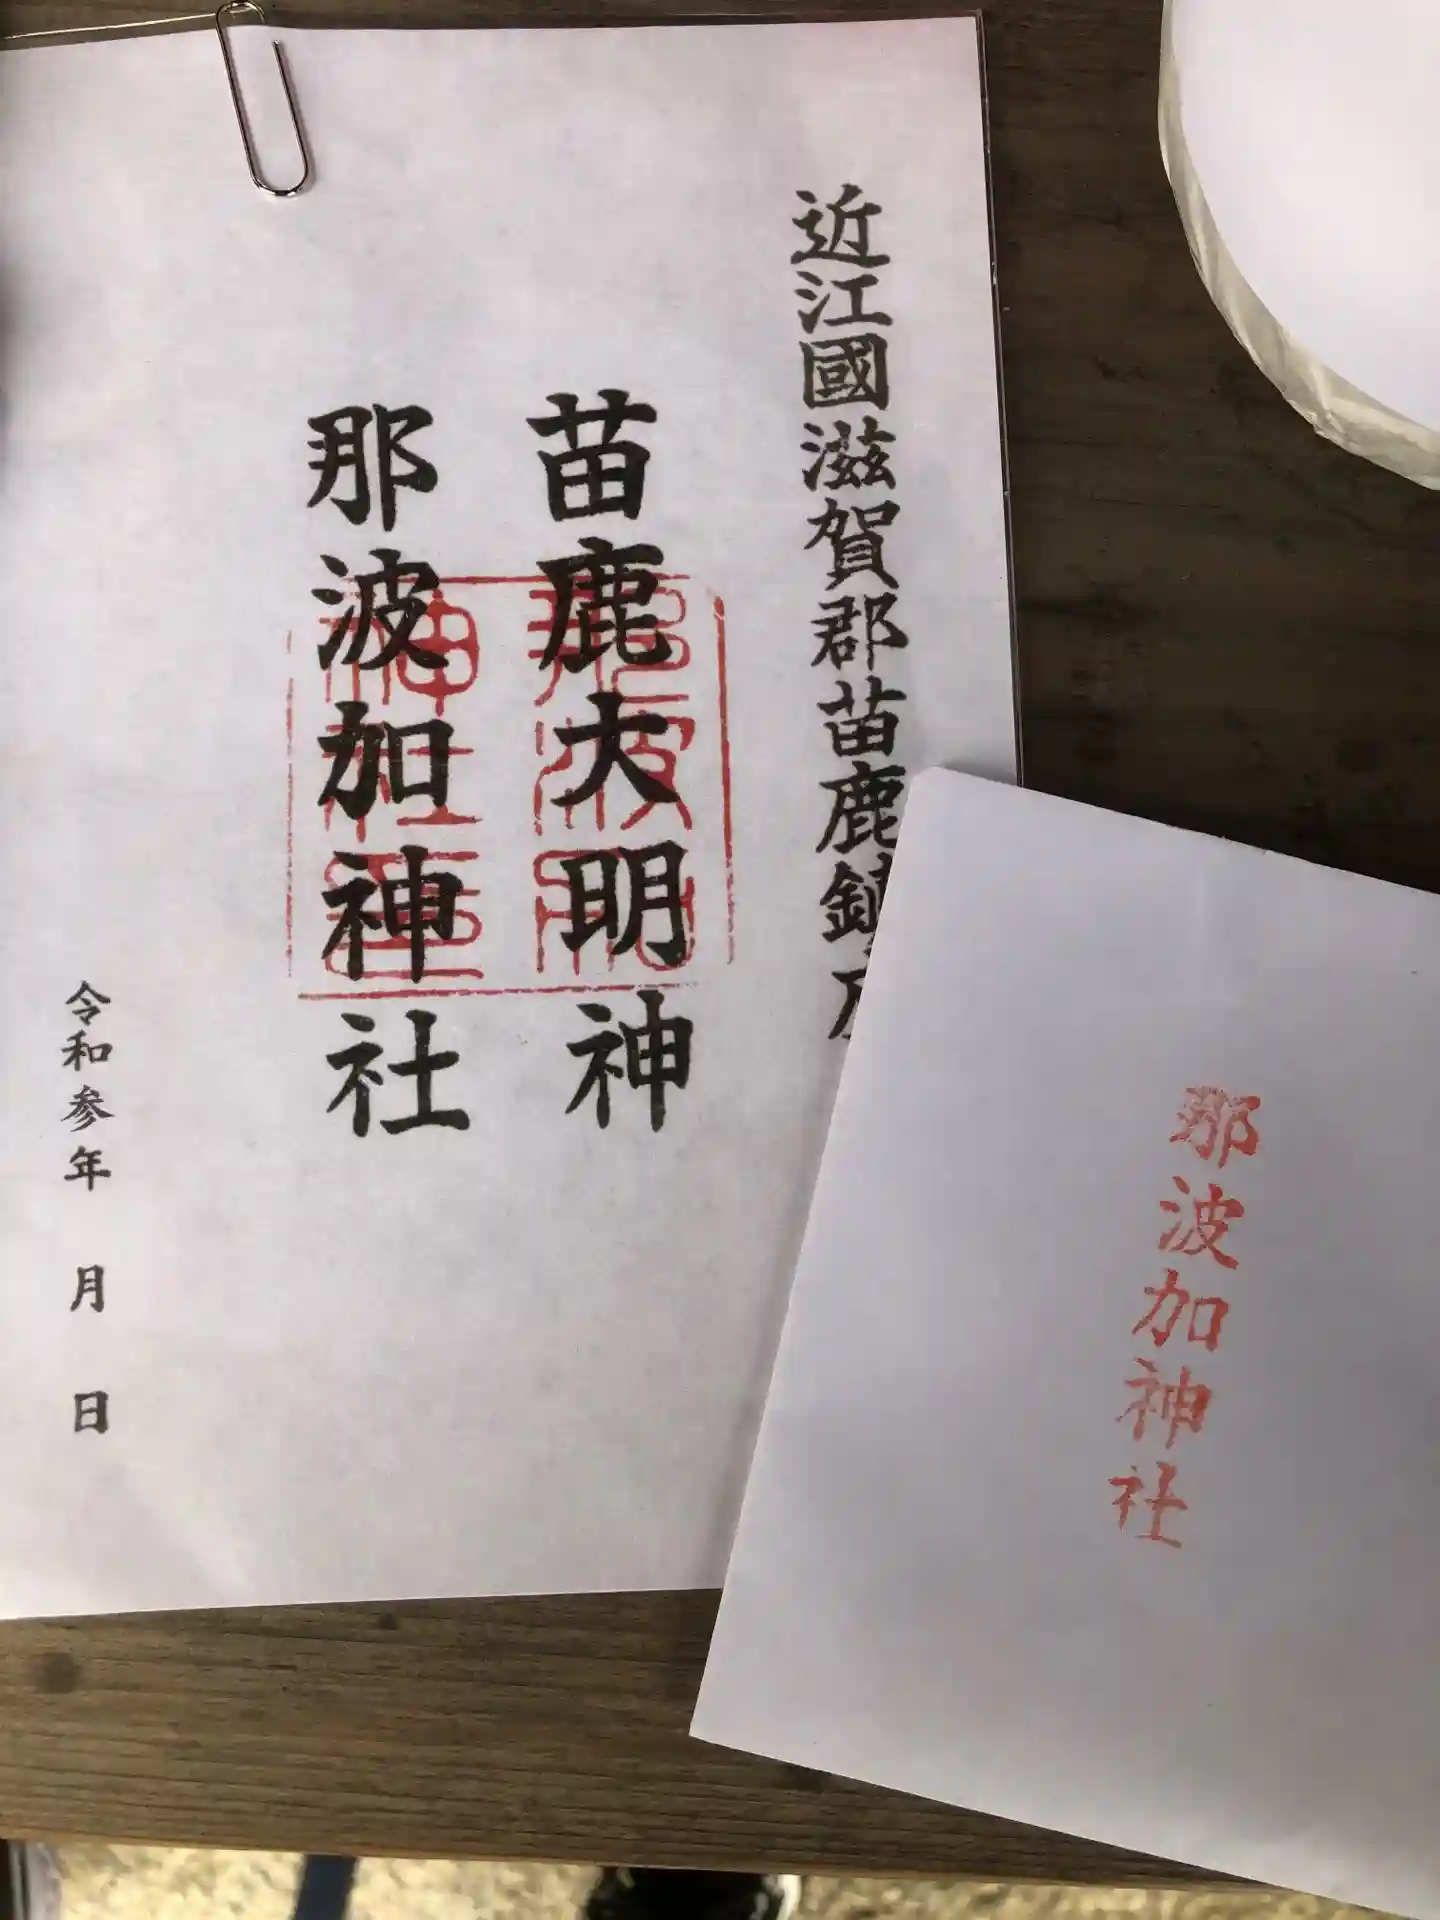 近江國滋賀郡苗鹿鎮
苗鹿大明神
那波加神社
令和参年 月 日
那波加神社